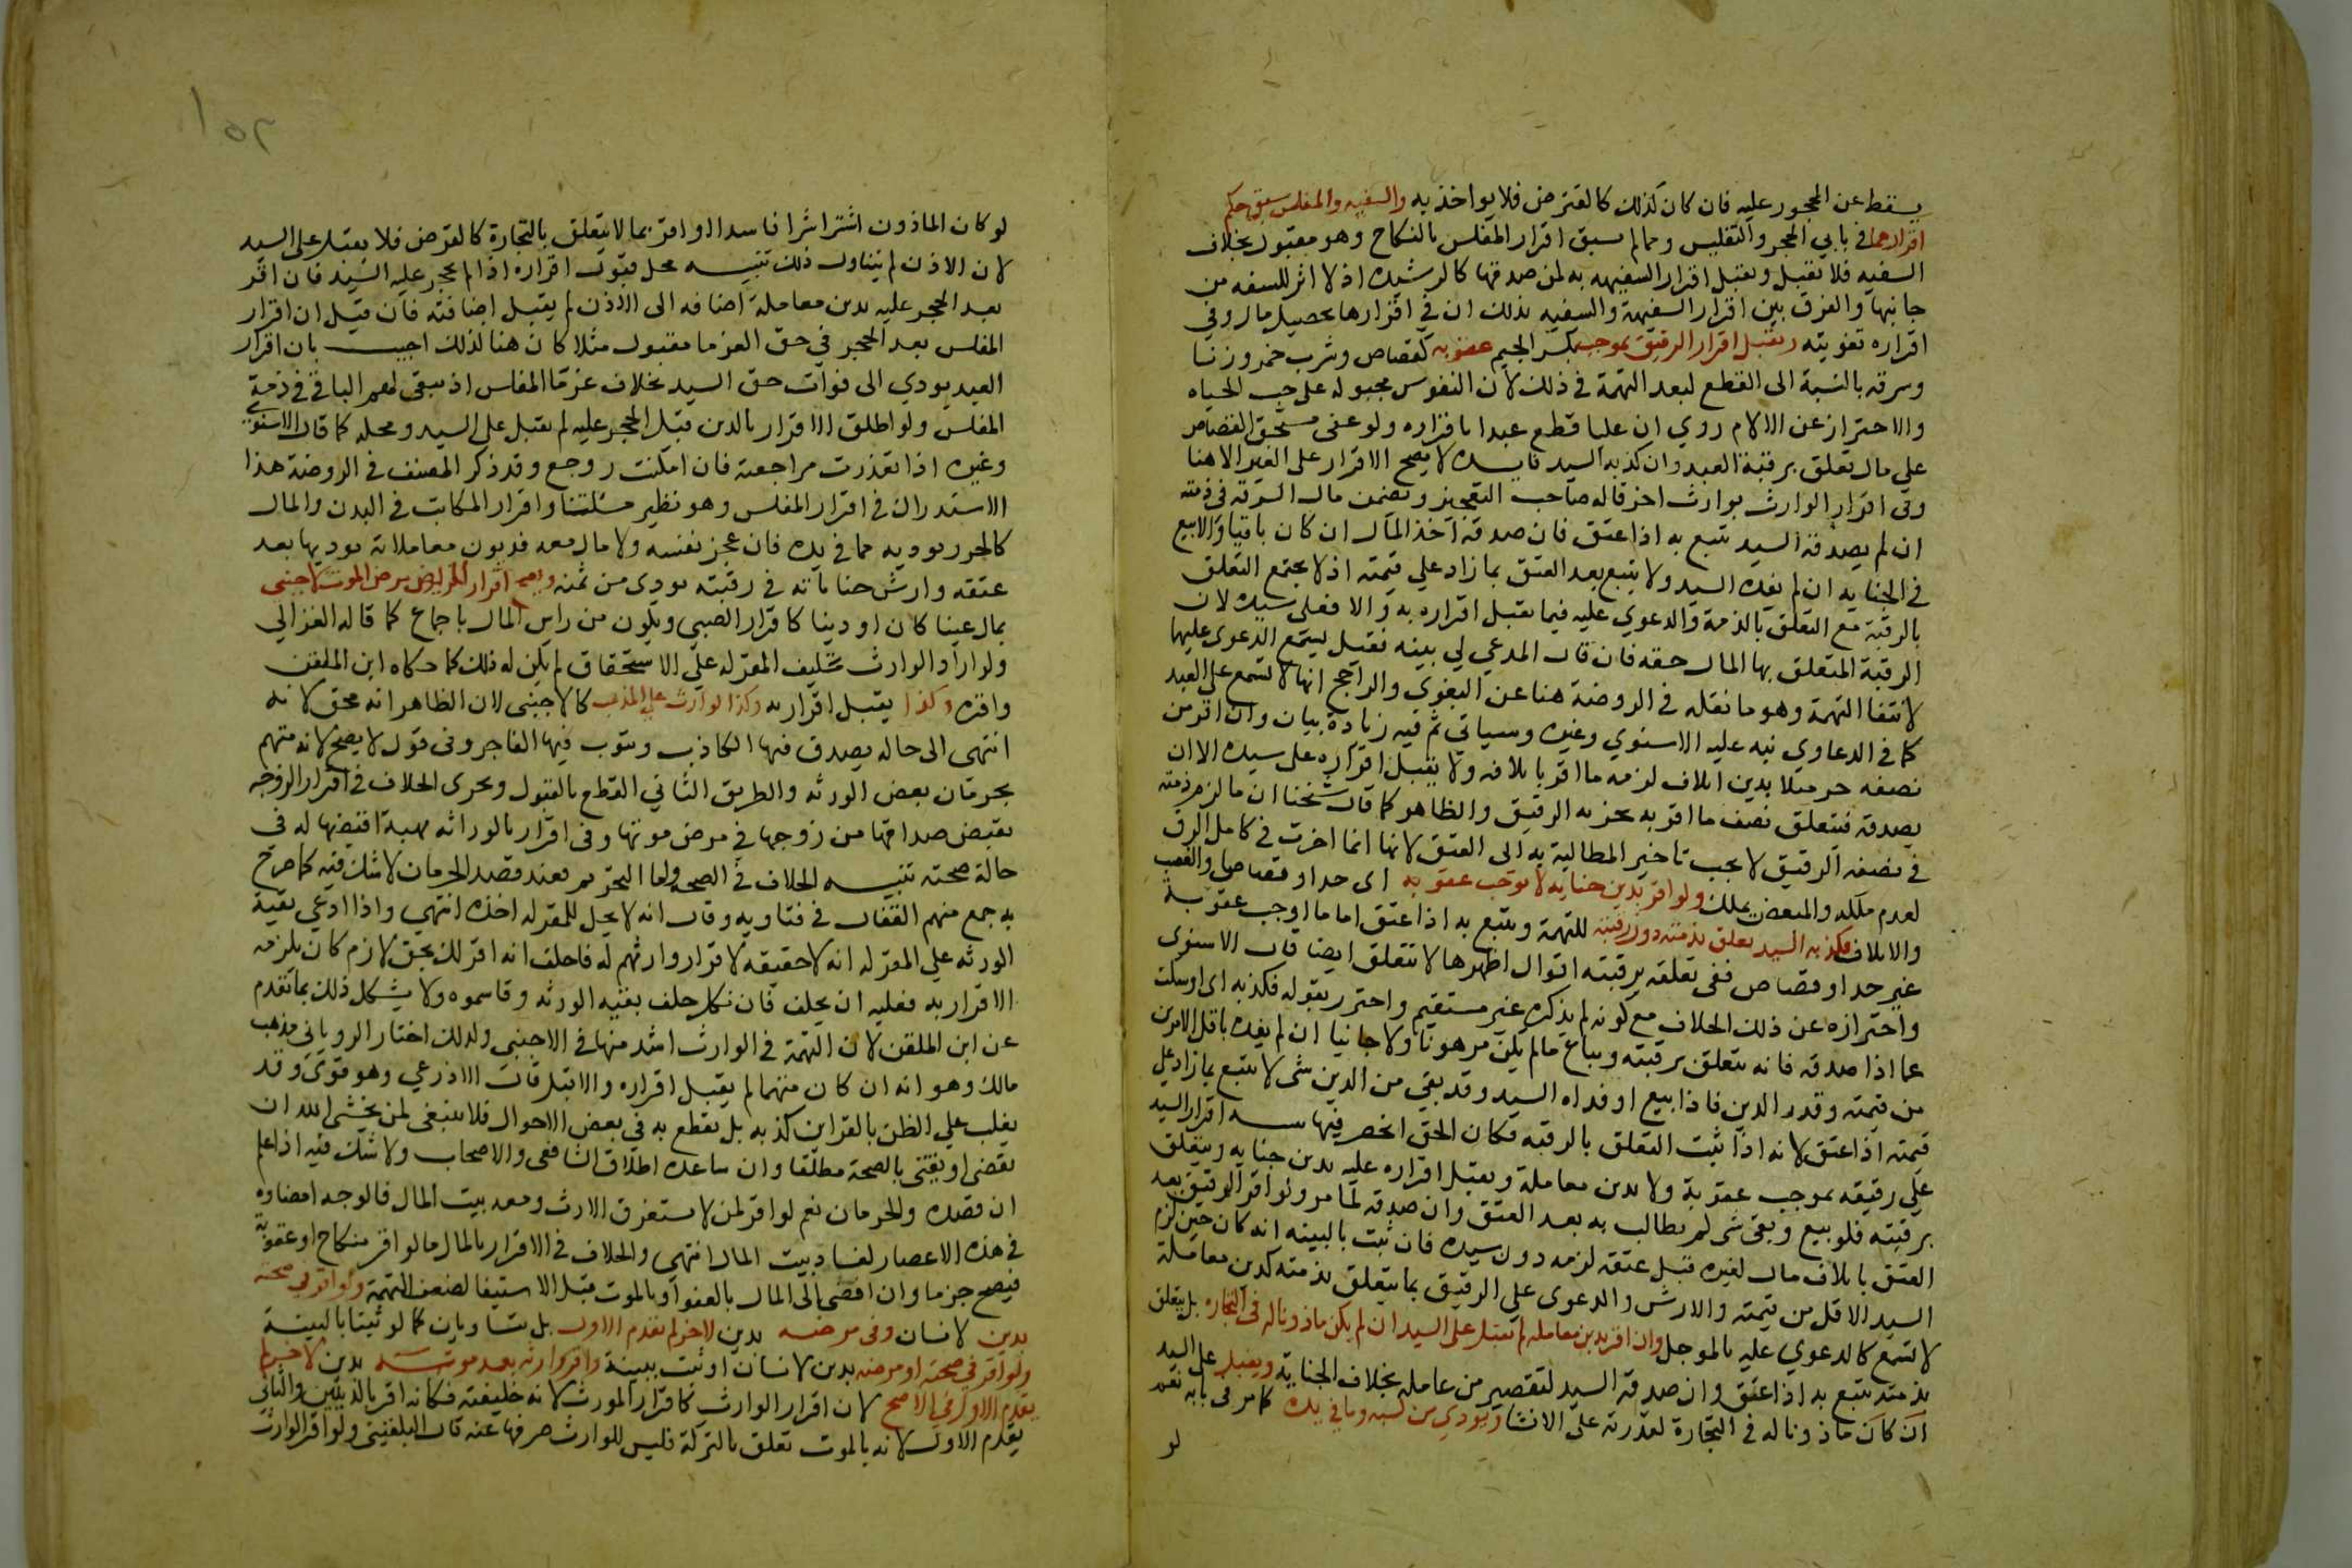 يسقط عن المحجور عليه فان كان كذلك كالمقترض فلا يواخذ به والسفيه والمفلس سبق حكم
اقرارهما في بابي الحجر والتفليس ومما لم يسبق اقرار المفلس بالنكاح وهو مقبول بخلاف
السفيه فلا يقبل ويقبل اقرار السفيهه به لمن صدقها كالرشيده اذ لا اثر للسفه من
جانبها والفرق بين اقرار السفيهة والسفيه بذلك ان في اقرارها تحصيل مال وفي
اقراره تفويته ويقبل اقرار الرقيق بموجب بكسر الجيم عقوبه كقصاص وشرب خمر وزنا
وسرقه بالنسبة الى القطع لبعد التهمة في ذلك لان النفوس مجبوله على حب الحياه
والاحتراز عن الالام روي ان عليا قطع عبدا باقراره ولو عفى مستحق القصاص
على مال تعلق برقبة العبد وان كذبه السيد فايده لا يصح الاقرار على الغير الا هنا
وفي اقرار الوارث بوارث اخر قاله صاحب التعجيز ويضمن مال السرقه في ذمته
ان لم يصدقه السيد يتبع به اذا عتق فان صدقه اخذ المال ان كان باقيا والا بيع
في الجنايه ان لم يفده السيد ولا يتبع بعد العتق بما زاد على قيمته اذ لا يجتمع التعلق
بالرقبة مع التعلق بالذمة والدعوي عليه فيما يقبل اقراره به والا فعلى سيده لان
الرقبة المتعلق بها المال حقه فان قال المدعي لي بينه فقيل يستمع الدعوى عليهما
لانتفا التهمة وهو ما نقله في الروضة هنا عن البغوي والراجح انها لا تسمع على العبد
كما في الدعاوي نبه عليه الاسنوي وغيره وسياتي ثم فيه زيادة بيان وان اقر من
نصفه حر مثلا بدين اتلاف لزمه ما اقر باتلافه ولا يقبل اقراره على سيده الا ان
يصدقه فيتعلق نصف ما اقر به بجزيه الرقيق والظاهر كما قال شيخنا ان ما لزم ذمته
في نصفه الرقيق لا يجب تاخير المطالبة به الى العتق لانها انما اخرت في كامل الرق
لعدم ملكه والمبعض يملك ولو اقر بدين جنايه لا توجب عقوبه اى حدا وقصاصا والغصب
والاتلاف فكذبه السيد تعلق بذمته دون رقبته للتهمة ويتبع به اذا عتق اما ما اوجب عقوبة
غير حد او قصاص ففي تعلقه برقبته اقوال اظهرها لا تتعلق ايضا قال الاسنوى
واحترازه عن ذلك الخلاف مع كونه لم يذكره غير مستقيم واحترز بقوله فكذبه اى او سكت
عما اذا صدقه فانه يتعلق برقبته ويباع ما لم يكن مرهونا ولا جانيا ان لم يفده باقل الامرين
من قيمته وقدر الدين فاذا بيع او فداه السيد وقد بقي من الدين شى لا يتبع بما زاد على
قيمته اذا عتق لانه اذا ثبت التعلق بالرقبه فكان الحق انحصر فيها اقرار السيد
على رقيقه بموجب عقوبة ولا بدين معاملة ويقبل اقراره عليه بدين جنايه ويتعلق
برقبته فلو بيع وبقى شى لم يطالب به بعد العتق وان صدقه لما مر ولو اقر الرقيق بعد
العتق باتلاف مال لغيره قبل عتقه لزمه دون سيده فان ثبت بالبينه انه كان حين لزم
السيد الاقل من قيمته والارش والدعوى على الرقيق بما يتعلق بذمته كدين معاملة
لا تسمع كالدعوي عليه بالموجل وان اقر بدين معاملة لم يقبل على السيد ان لم يكن ماذونا له في التجاره بل يتعلق
بذمته يتبع به اذا عتق وان صدقه السيد لتقصير من عامله بخلاف الجنايه ويقبل على السيد
ان كان ماذونا له في التجارة لقدرته على الانشا ويودي من كسبه وما في يده كما مر في بابه نعم
لو
١٥٢
لو كان الماذون اشترا شرا فاسدا او اقر بما لا يتعلق بالتجارة كالقرض فلا يقبل على السيد
لان الاذن لم يتناول ذلك تنبيه محل قبول اقراره اذا لم يحجر عليه السيد فان اقر
بعد الحجر عليه بدين معاملة اضافه الى الاذن لم يقبل اضافته فان قيل ان اقرار
المفلس بعد الحجر في حق الغرما مقبول مثلا كان هنا لذلك اجيب بان اقرار
العبد يودي الى فوات حق السيد بخلاف غرما المفلس اذ يبقى لهم الباقي في ذمة
المفلس ولو اطلق الاقرار بالدين قبل الحجر عليه لم يقبل على السيد ومحله كما قال الاسنوي
وغيره اذا تعذرت مراجعته فان امكنت روجع وقد ذكر المصنف في الروضة هذا
الاستدراك في اقرار المفلس وهو نظير مسئلتنا واقرار المكاتب في البدن والمال
كالحر ويوديه مما في يده فان عجز نفسه ولا مال معه فديون معاملاته يوديها بعد
عتقه وارش جناياته في رقبته يودى من ثمنه ويصح اقرار المريض مرض الموت لاجنبي
بمال عينا كان او دينا كاقرار الصبي ويكون من راس المال باجماع كما قاله الغزالي
ولو اراد الوارث تحليف المقر له على الاستحقاق لم يكن له ذلك كما حكاه ابن الملقن
واقره وكذا يقبل اقرار به وكذا لوارث على المذهب كالاجنبى لان الظاهر انه محق لانه
انتهى الى حاله يصدق فيها الكاذب ويتوب فيها الفاجر وفى قول لا يصح لانه متهم
بحرمان بعض الورثه والطريق الثاني القطع بالقبول ويجرى الخلاف في اقرار الزوجه
بقبض صداقها من زوجها في مرض موتها وفى اقرار بالوراثه بهبة اقبضها له في
حالة صحته تنبيه الخلاف في الصحه واما التحريم فعند قصد الحرمان لا شك فيه كما صرح
به جمع منهم القفال في فتاويه وقال انه لا يحل للمقر له اخذه انتهى واذا ادعي بقية
الورثه على المقر له انه لا حقيقه لاقرار وارثهم له فاحلف انه اقر لك بحق لازم كان يلزمه
الاقرار به فعليه ان يحلف فان نكل حلف بقيه الورثه وقاسموه ولا يشكل ذلك بما تقدم
عن ابن الملقن لان التهمة في الوارث اشد منها في الاجنبى ولذلك اختار الروياني مذهب
مالك وهو انه ان كان متهما لم يقبل اقراره والا قبل قال الاذرعي وهو قوى وقد
يغلب على الظن بالقراين كذبه بل يقطع به في بعض الاحوال فلا ينبغى لمن يخشى الله ان
يقضى او يفتي بالصحة مطلقا وان ساعده اطلاق الشافعى والاصحاب ولا شك فيه اذا علم
ان قصده والحرمان نعم لو اقر لمن لا يستغرق الارث ومعه بيت المال فالوجه امضاوه
في هذه الاعصار لفساد بيت المال انتهى والخلاف في الاقرار بالمال مالو اقر بنكاح او عقوبة
فيصح جزما وان افضى الى المال بالعفو او بالموت قبل الاستيفا لضعف التهمة ولو اقر في صحته
بدين لانسان وفى مرضه بدين لاخر لم يقدم الاول بل يتساويان كما لو ثبتا بالبينة
ولو اقر في صحته او مرضه بدين لانسان او ثبت ببينة واقر وارثه بعد موته بدين لاخر لم
يقدم الاول في الاصح لان اقرار الوارث كاقرار المورث لانه خليفته فكانه اقر بالدينين والثاني
يقدم الاول لانه بالموت تعلق بالتركة فليس للوارث صرفها عنه قال البلقيني ولو اقر الوارث